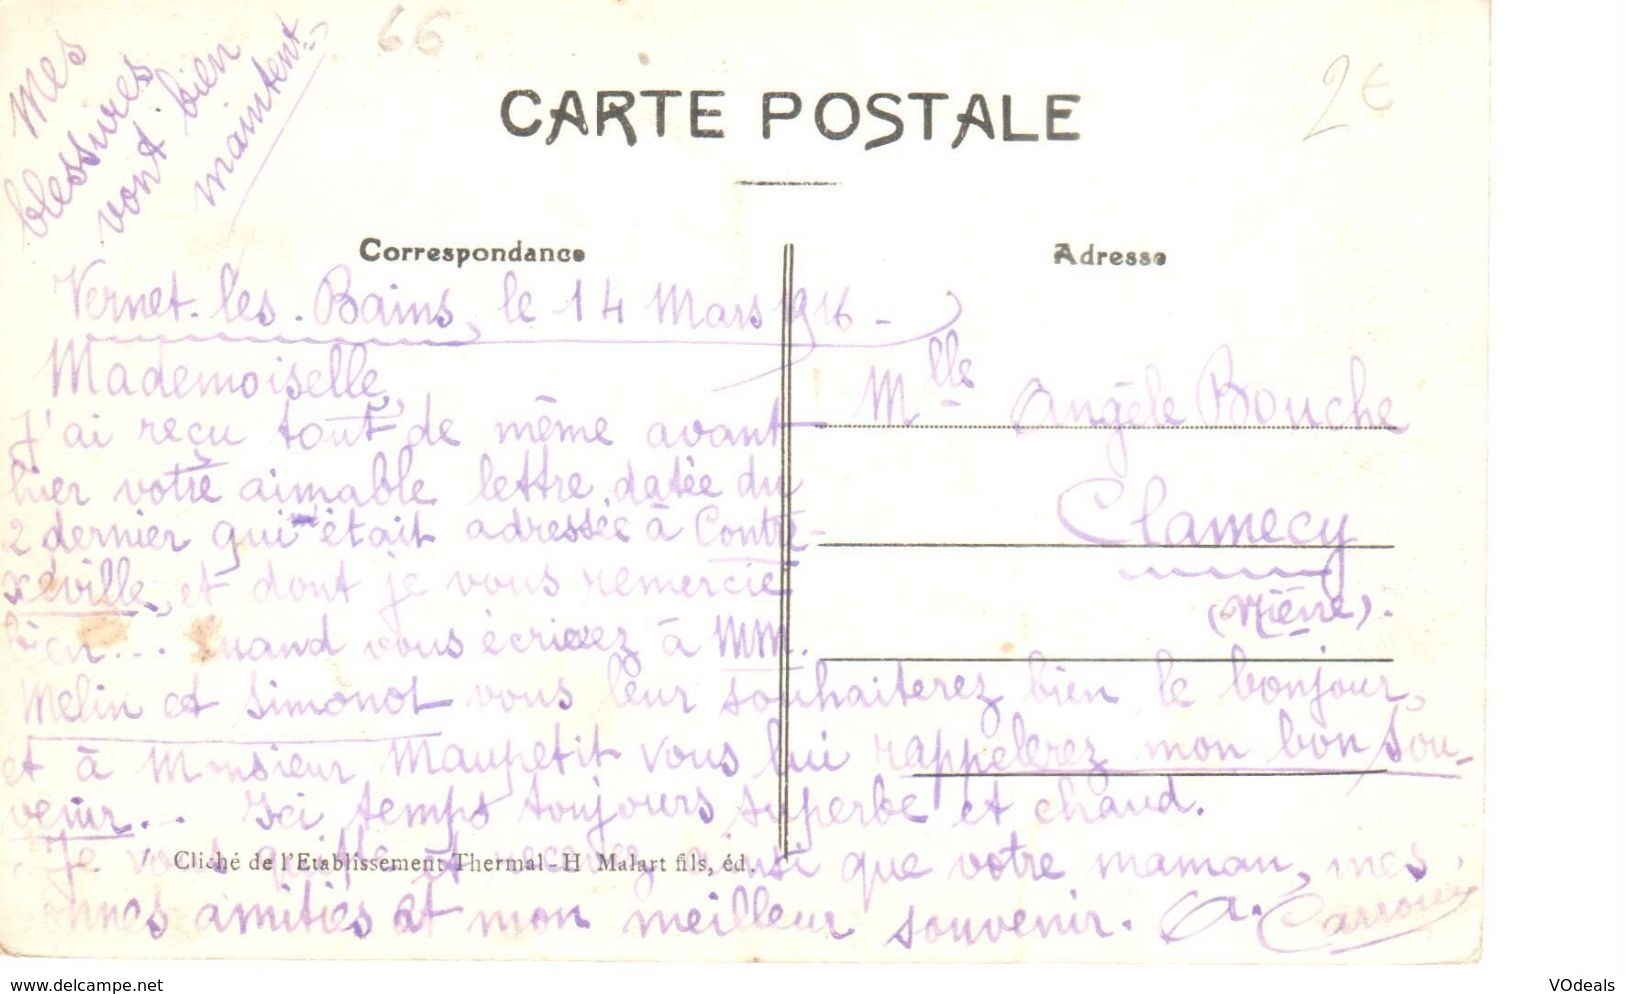 Mes
blessures
vont bien
maintent
66
2€
CARTE POSTALE
Correspondance
Adresse
Vernet-les-Bains, le 14 Mars 1916 -
Mademoiselle,
J'ai reçu tout de même avant
hier votre aimable lettre datée du
2 dernier qui était adressée à Contre-
xéville, et dont je vous remercie
bien... Quand vous écrirez à MM.
Melin et Simonot vous leur souhaiterez bien le bonjour,
et à Monsieur Maupetit vous lui rappelerez mon bon sou-
venir... Ici temps toujours superbe et chaud.
Je vous quitte et recevez ainsi que votre maman, mes
bonnes amitiés et mon meilleur souvenir. A.
Mlle Angèle Bouche
Clamecy
(Nièvre).
Cliché de l'Etablissement Thermal - H Malart fils, éd.
www.delcampe.net
VOdeals